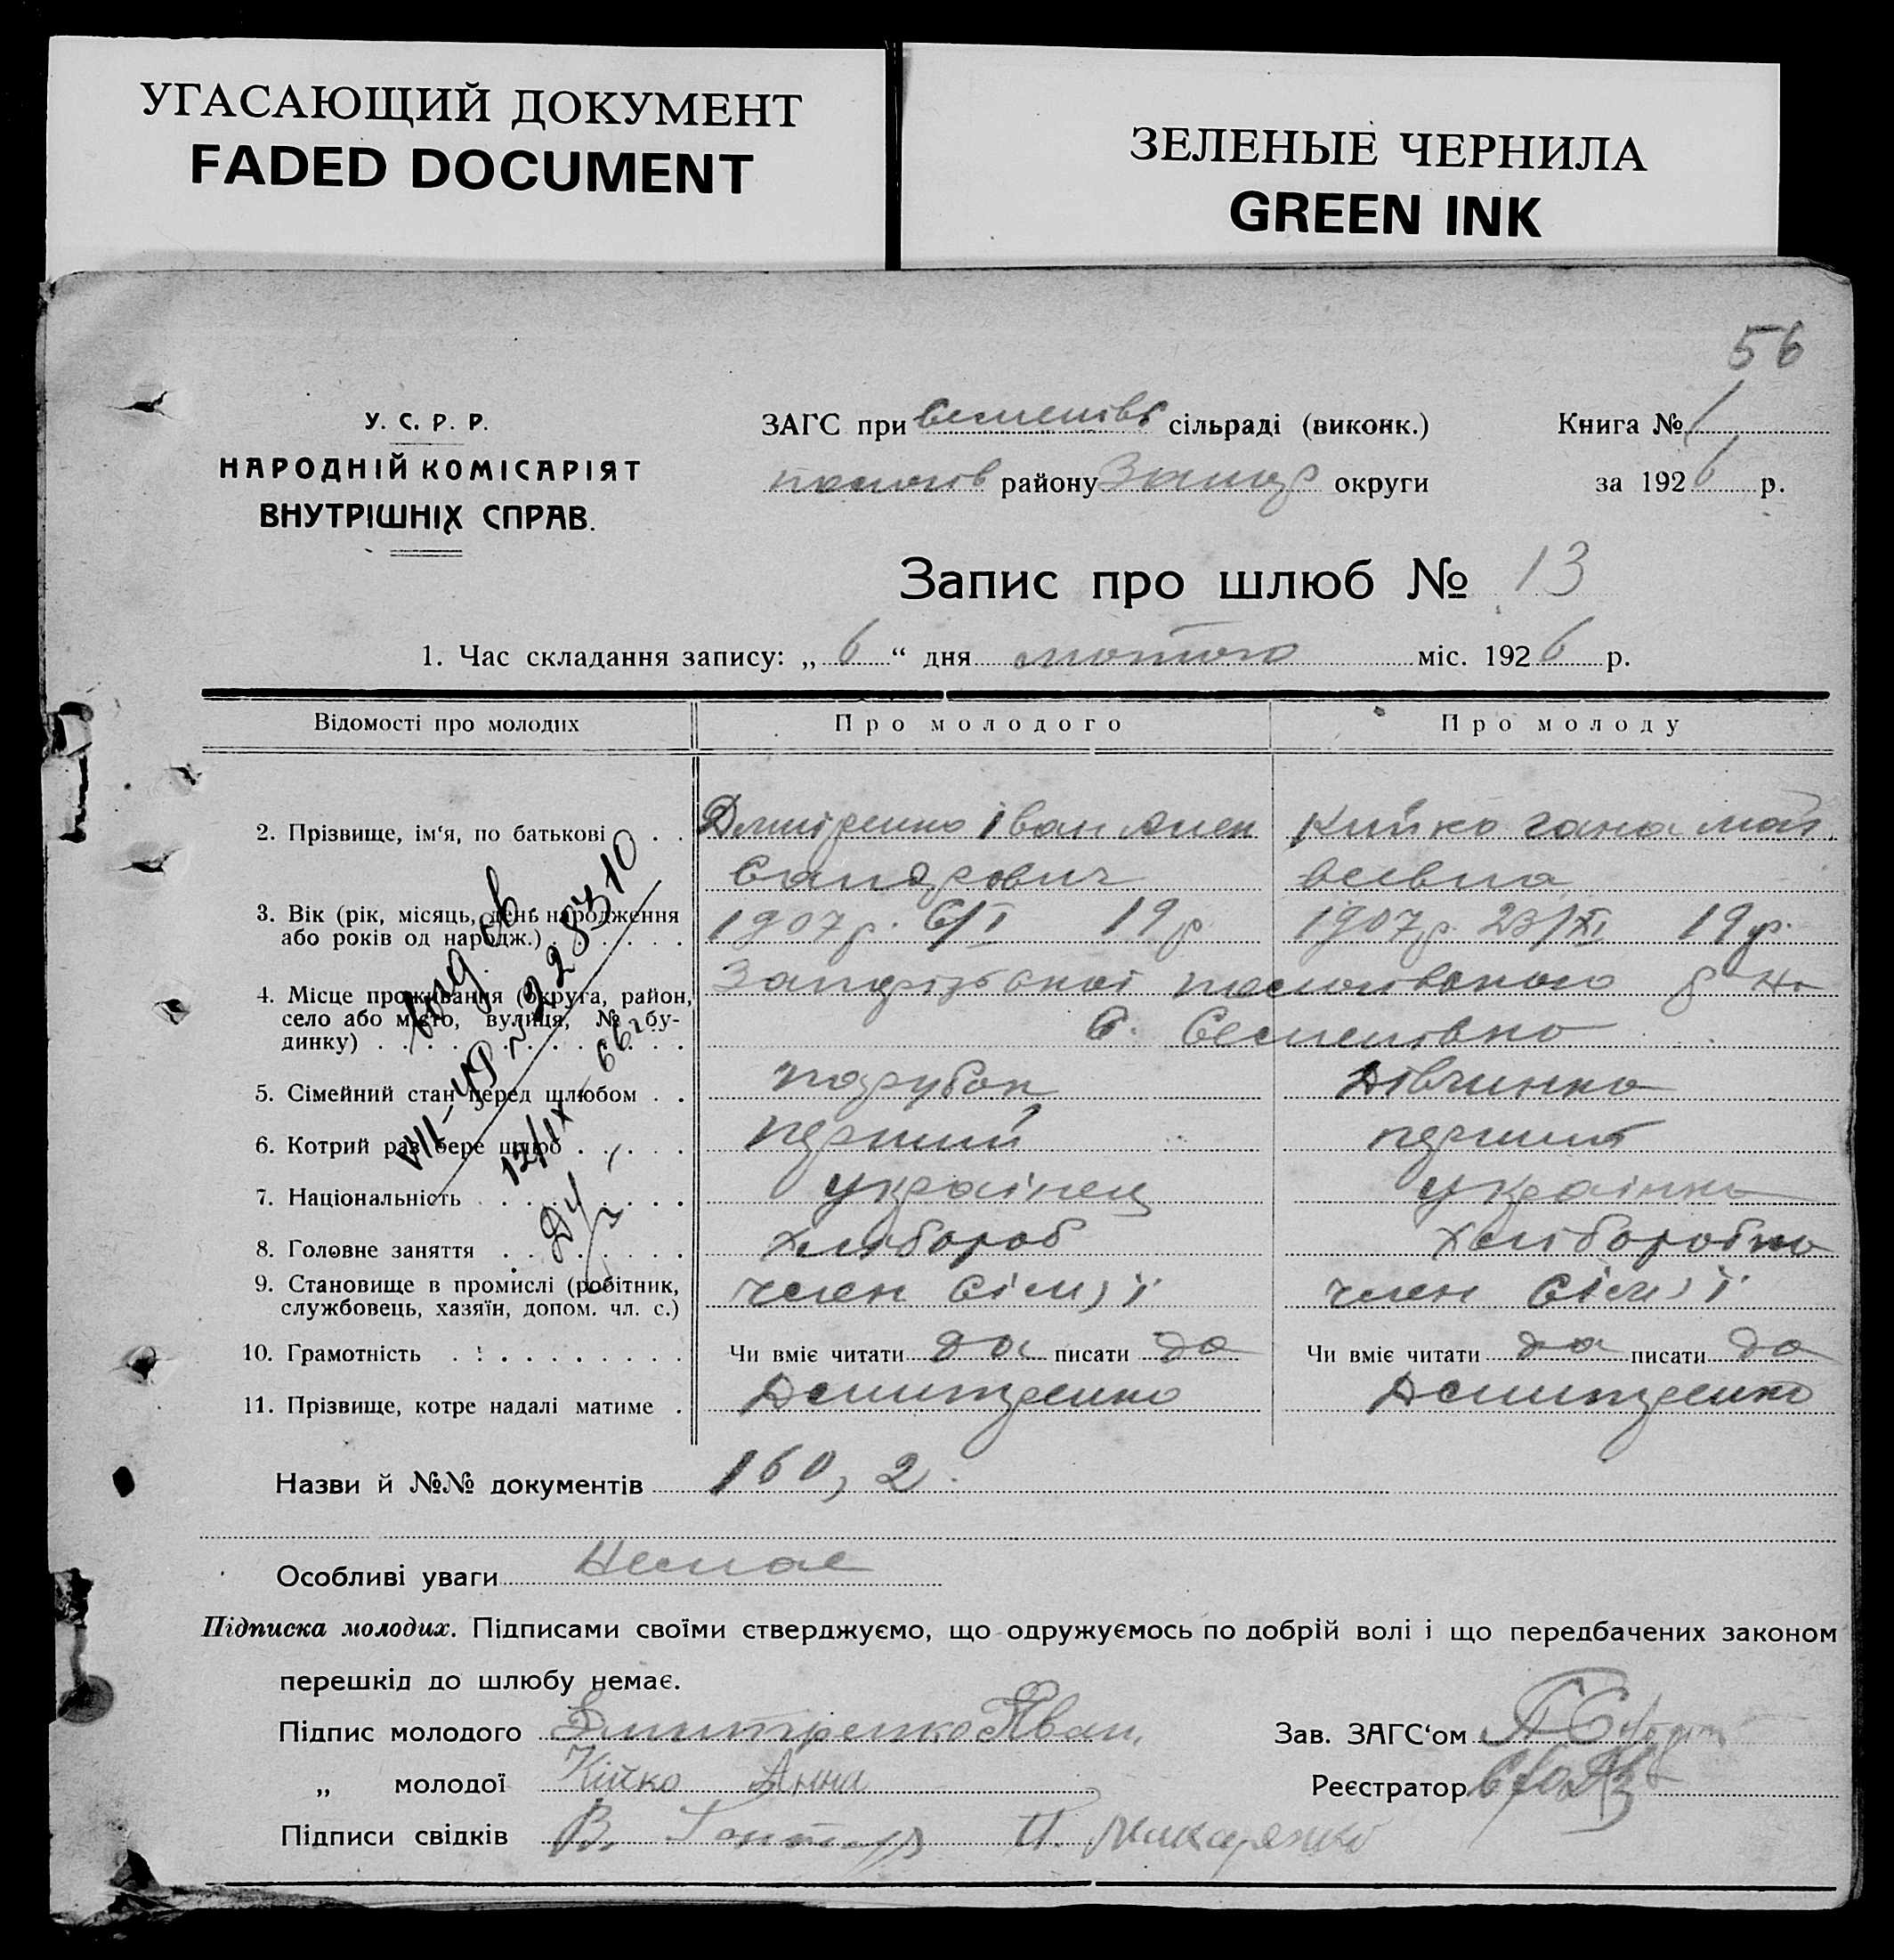 УГАСАЮЩИЙ ДОКУМЕНТ
FADED DOCUMENT
ЗЕЛЕНЫЕ ЧЕРНИЛА
GREEN INK
56
У. С. Р. Р.
НАРОДНІЙ КОМІСАРІЯТ
ВНУТРІШНІХ СПРАВ.
ЗАГС при Семенівс сільраді (виконк.)
пологів району Запор округи
Книга № 1
за 1926 р.
Запис про шлюб № 13
1. Час складання запису: „ 6 “ дня лютого міс. 1926 р.
Відомості про молодих Про молодого Про молоду
2. Прізвище, ім'я, по батькові . . Дмитренко Іван Алек Кийко гана мат
сандрович веевна
3. Вік (рік, місяць, день народження
або років од народж.) . . . . . . 1907р. 6/І 19 р 1907р. 23/ХІ 19 р.
4. Місце проживання (округа, район,
село або місто, вулиця, № бу-
динку) . . . Запорізської пологівського р-на
С. Семенівка
5. Сімейний стан перед шлюбом . . парубок дівчинка
6. Котрий раз бере шлюб . . . . . перший перший
7. Національність . . . українец українка
8. Головне заняття . . . хлібороб хліборобка
9. Становище в промислі (робітник,
службовець, хазяїн, допом. чл. с.) член сім,ї член сім,ї
10. Грамотність . . . Чи вміє читати да писати да Чи вміє читати да писати да
11. Прізвище, котре надалі матиме . Дмитренко Дмитренко
выд св.
VII-УР № 228310
12/IX 66г
Назви й №№ документів 160, 2.
Особливі уваги Немає
Підписка молодих. Підписами своїми стверджуємо, що одружуємось по добрій волі і що передбачених законом
перешкід до шлюбу немає.
Підпис молодого Дмитренко Иван Зав. ЗАГС'ом
„ молодої Кійко Анна Реєстратор
Підписи свідків В. Гонтар П. Макаренко